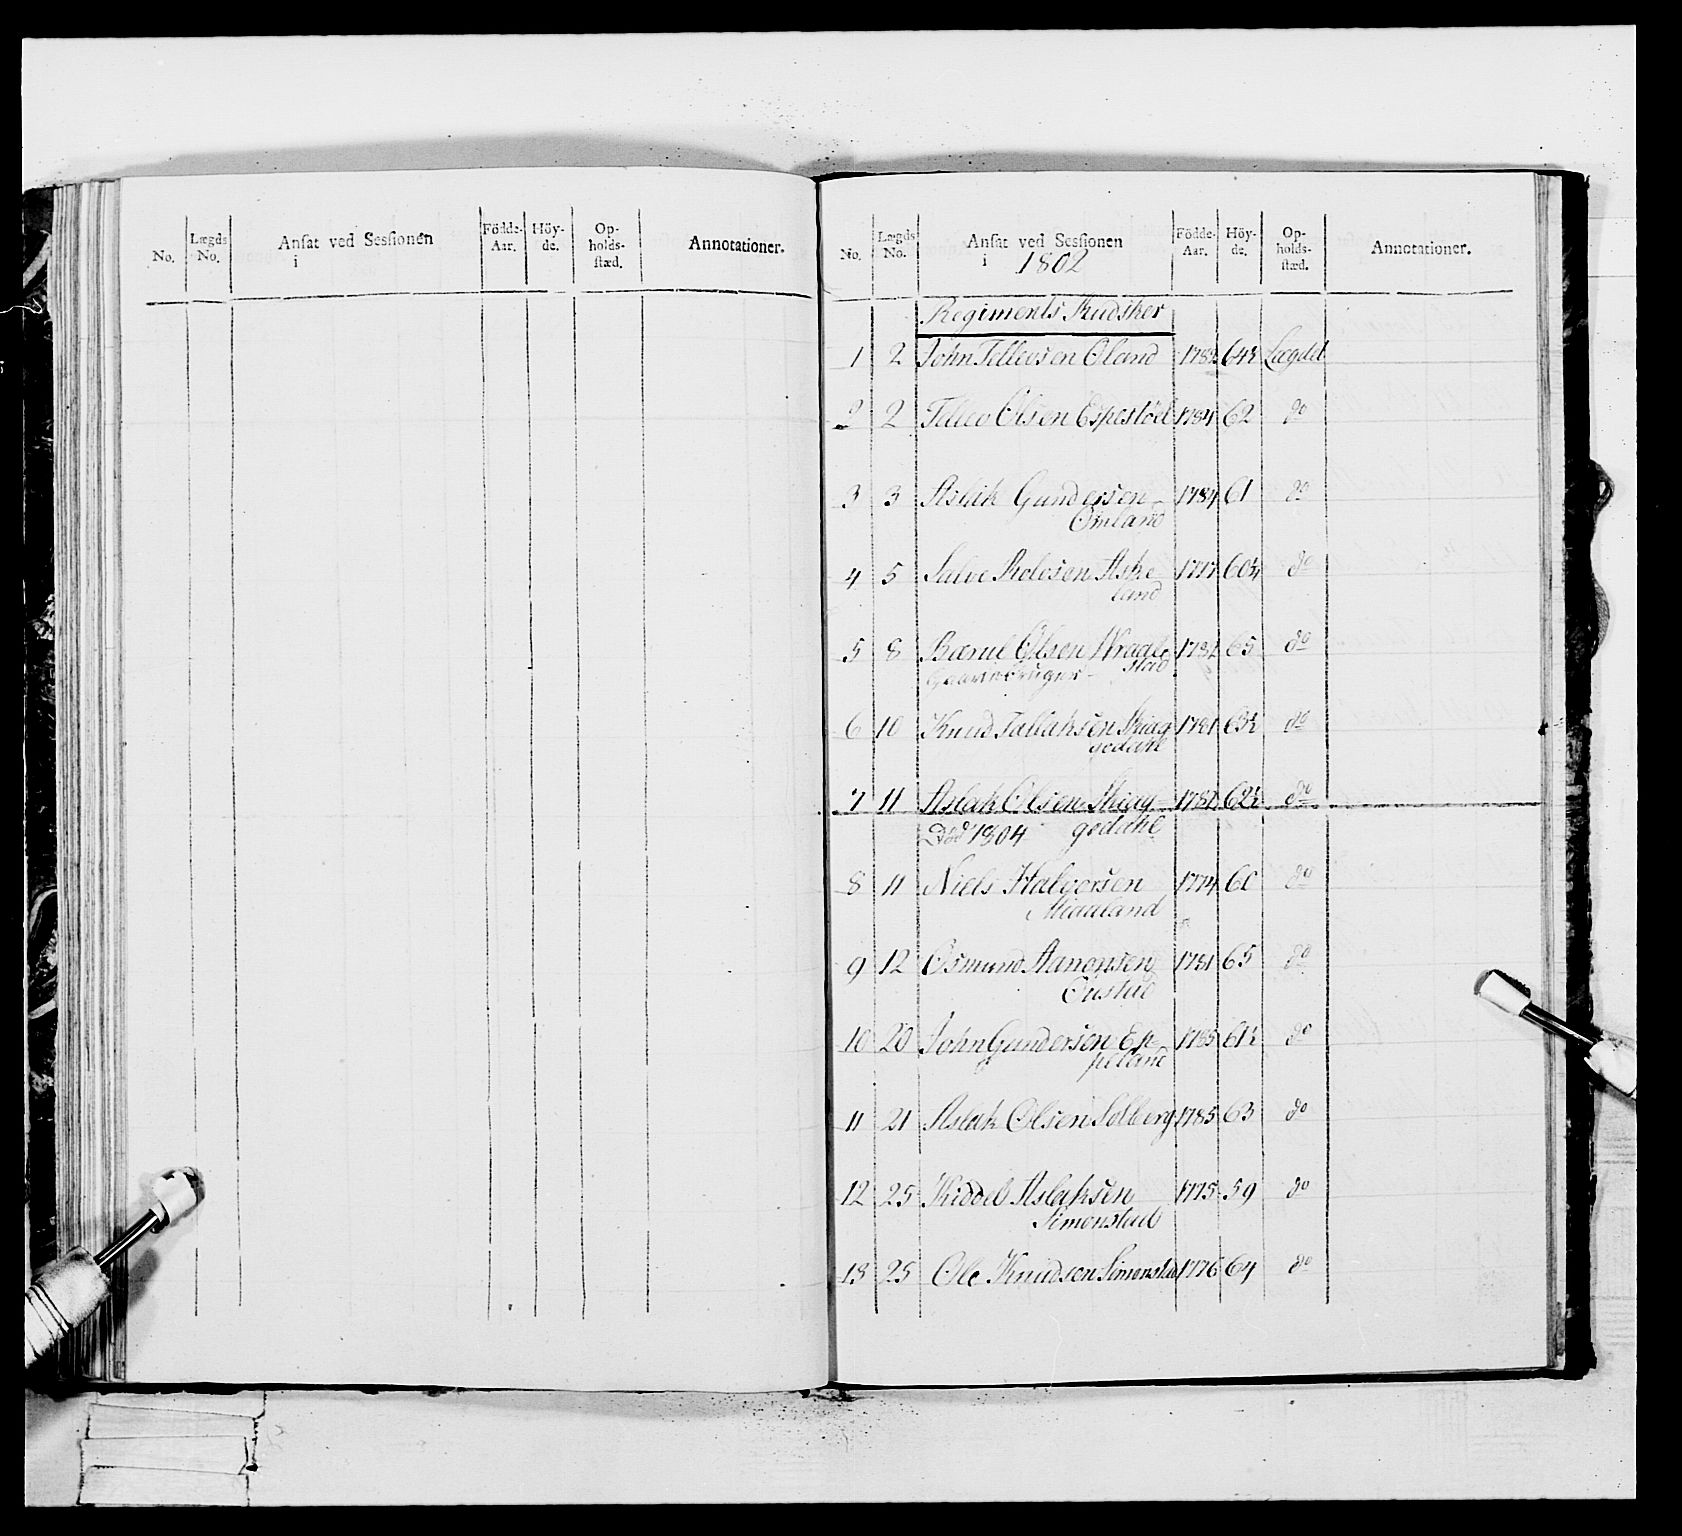 No.
Lægds No.
Ansat ved Sessionen i
Födde-Aar.
Höy-de.
Op-holds-stæd.
Annotationer.
No.
Lægds No.
Ansat ved Sessionen i 1802
Födde-Aar.
Höy-de.
Op-holds-stæd.
Annotationer.
Regiments Kudsker
1 2 John Tellevsen Oland 64½ Lægdet
2 2 Tellev Olsen Espestöel 1784 62 do
3 3 Aslak Gundersen 1784 61 do
Omland
4 5 Salve Aske 1777 60¾ do
land
5 8 Olsen 65 do
stad
Gaardbruger
6 10 Knud Tallaksen Skiag 1781 63½ do
gedahl
7 11 Aslak Olsen Skiag 62½ do
Död 1804 gedahl
8 11 Niels Halvorsen 1774 60 do
Miaaland
9 12 Osmund Aanonsen 1781 65 do
10 20 John Gundersen Ep- 1785 61½ do
peland
11 21 Aslak Olsen Solberg 1785 63 do
12 25 Kiddel Aslaksen 1775 59 do
Simonstad
13 25 Ole Knudsen Simonstad 1776 64 do